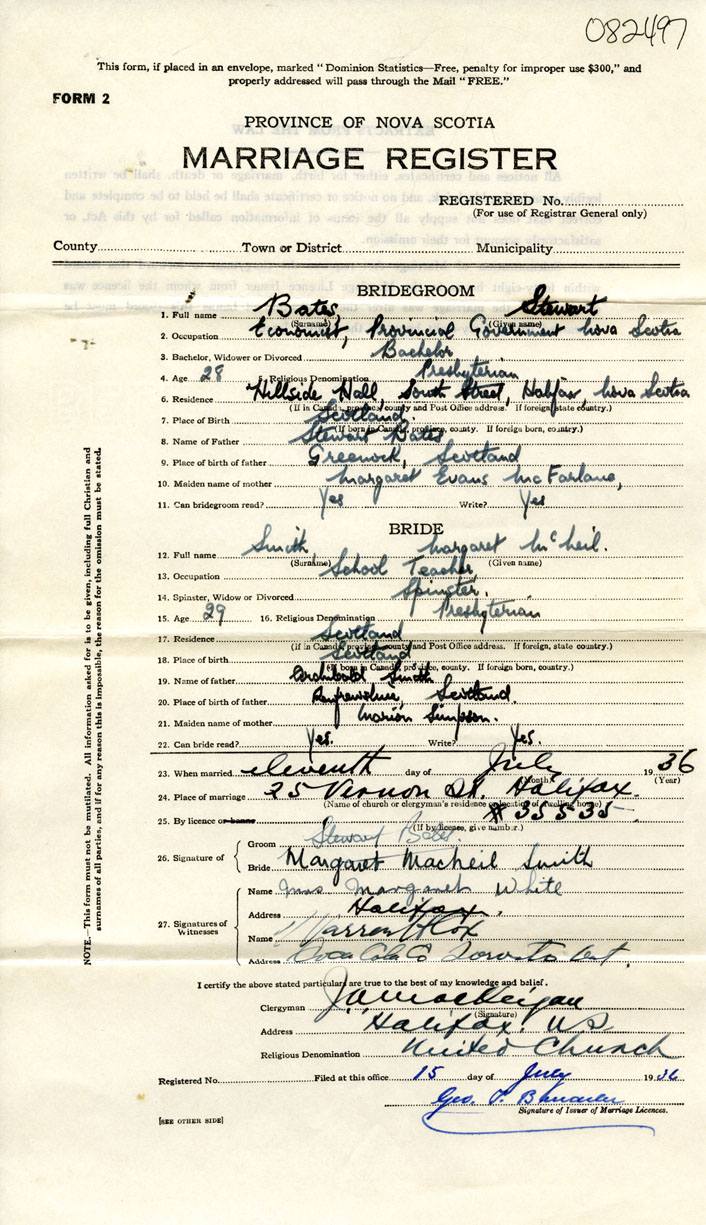 082497
This form, if placed in an envelope, marked "Dominion Statistics—Free, penalty for improper use $300," and
properly addressed will pass through the Mail "FREE."
FORM 2
PROVINCE OF NOVA SCOTIA
MARRIAGE REGISTER
REGISTERED No.
(For use of Registrar General only)
County Town or District Municipality
BRIDEGROOM
1. Full name Bates Stewart
(Surname) (Given name)
2. Occupation Economist, Provincial Government Nova Scotia
3. Bachelor, Widower or Divorced Bachelor
4. Age 28 5. Religious Denomination Presbyterian
6. Residence Hillside Hall, South Street, Halifax, Nova Scotia
(If in Canada, province, county and Post Office address. If foreign, state country.)
7. Place of Birth Scotland.
(If born in Canada, province, county. If foreign born, country.)
8. Name of Father Stewart Bates
9. Place of birth of father Greenock, Scotland
10. Maiden name of mother Margaret Evans McFarlane,
11. Can bridegroom read? Yes Write? Yes
BRIDE
12. Full name Smith Margaret McNeil.
(Surname) (Given name)
13. Occupation School Teacher
14. Spinster, Widow or Divorced Spinster.
15. Age 29 16. Religious Denomination Presbyterian
17. Residence Scotland
(If in Canada, province, county and Post Office address. If foreign, state country.)
18. Place of birth Scotland
(If born in Canada, province, county. If foreign born, country.)
19. Name of father Archibald Smith
20. Place of birth of father Renfrewshire, Scotland.
21. Maiden name of mother Marion Simpson.
22. Can bride read? Yes. Write? Yes.
23. When married eleventh day of July 1936
(Month) (Year)
24. Place of marriage 25 Vernon St. Halifax.
(Name of church or clergyman's residence or location of dwelling house)
25. By licence or banns # 35535
(If by licence, give number.)
26. Signature of Groom Stewart Bates.
Bride Margaret MacNeil Smith
27. Signatures of Witnesses
Name Mrs Margaret White
Address Halifax,
Name Warren Cox
Address Coca Cola Co Toronto Ont.
I certify the above stated particulars are true to the best of my knowledge and belief.
Clergyman
(Signature)
Address Halifax. N.S.
Religious Denomination United Church
Registered No. Filed at this office 15 day of July 1936
Geo.
Signature of Issuer of Marriage Licences.
[SEE OTHER SIDE]
NOTE.—This form must not be mutilated. All information asked for is to be given, including full Christian and
surnames of all parties, and if for any reason this is impossible, the reason for the omission must be stated.